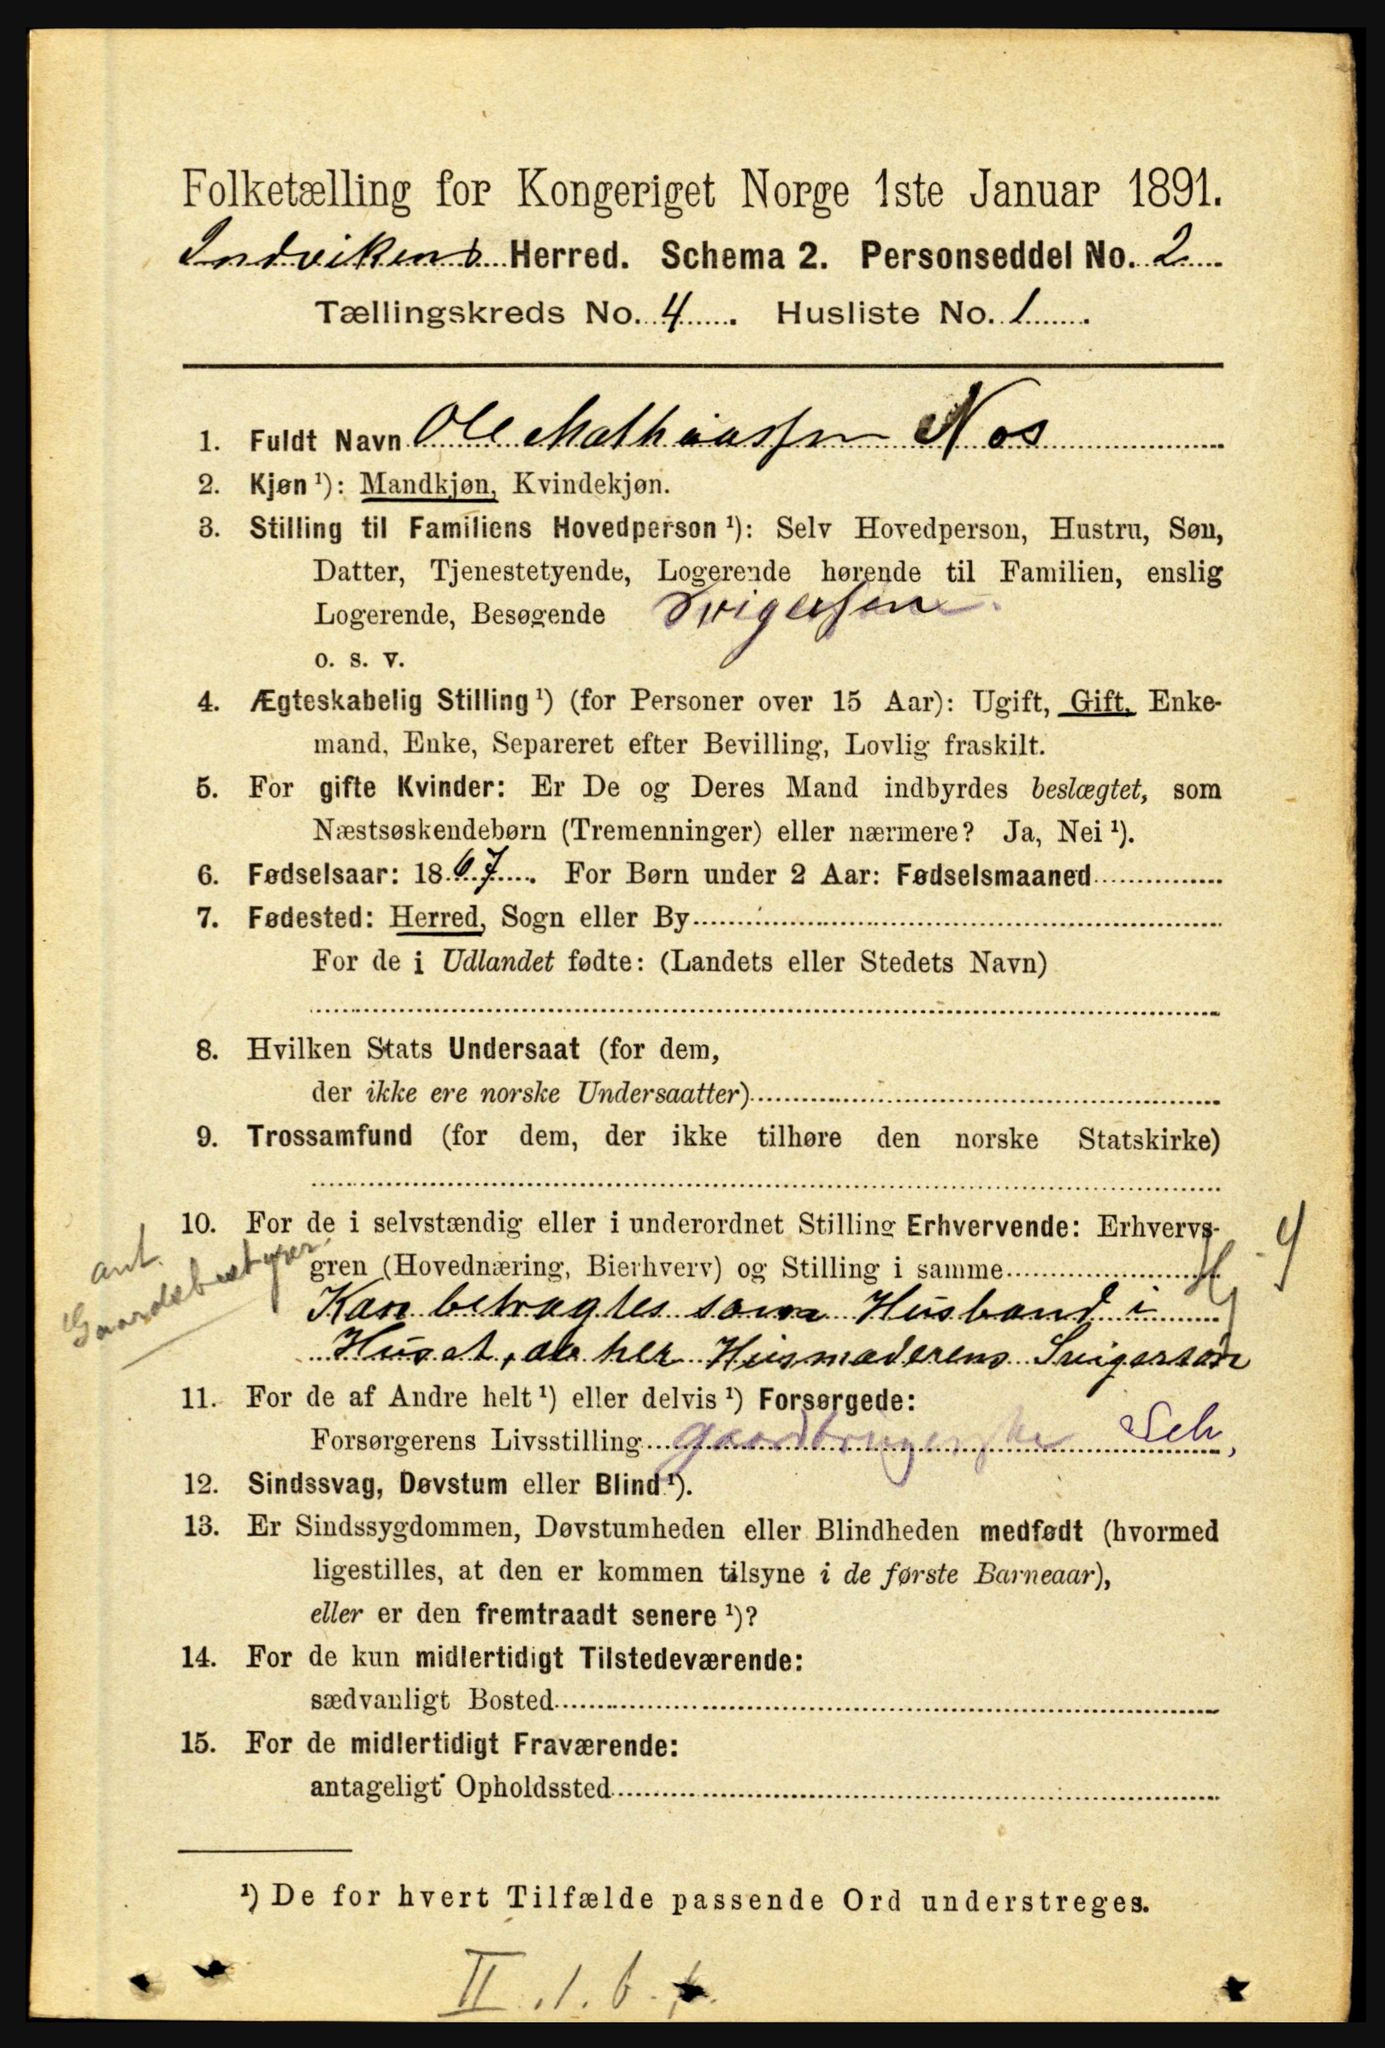 Folketælling for Kongeriget Norge 1ste Januar 1891.
Indvikens Herred. Schema 2. Personseddel No. 2
Tællingskreds No. 4. Husliste No. 1.
1. Fuldt Navn Ole Mathiassen Nos
2. Kjøn ¹): Mandkjøn, Kvindekjøn.
3. Stilling til Familiens Hovedperson ¹): Selv Hovedperson, Hustru, Søn,
Datter, Tjenestetyende, Logerende hørende til Familien, enslig
Logerende, Besøgende Svigersøn.
o. s. v.
4. Ægteskabelig Stilling ¹) (for Personer over 15 Aar): Ugift, Gift, Enke-
mand, Enke, Separeret efter Bevilling, Lovlig fraskilt.
5. For gifte Kvinder: Er De og Deres Mand indbyrdes beslægtet, som
Næstsøskendebørn (Tremenninger) eller nærmere? Ja, Nei ¹).
6. Fødselsaar: 1867. For Børn under 2 Aar: Fødselsmaaned
7. Fødested: Herred, Sogn eller By
For de i Udlandet fødte: (Landets eller Stedets Navn)
8. Hvilken Stats Undersaat (for dem,
der ikke ere norske Undersaatter)
9. Trossamfund (for dem, der ikke tilhøre den norske Statskirke)
10. For de i selvstændig eller i underordnet Stilling Erhvervende: Erhvervs-
ant. Gaardsbestyrer
gren (Hovednæring, Bierhverv) og Stilling i samme
Kan betragtes som Husbond i
Huset, da her Husmoderens Svigersøn
11. For de af Andre helt ¹) eller delvis ¹) Forsørgede:
Forsørgerens Livsstilling gaardbrugerske
12. Sindssvag, Døvstum eller Blind ¹).
13. Er Sindssygdommen, Døvstumheden eller Blindheden medfødt (hvormed
ligestilles, at den er kommen tilsyne i de første Barneaar),
eller er den fremtraadt senere ¹)?
14. For de kun midlertidigt Tilstedeværende:
sædvanligt Bosted
15. For de midlertidigt Fraværende:
antageligt Opholdssted
¹) De for hvert Tilfælde passende Ord understreges.
II. 1. b.